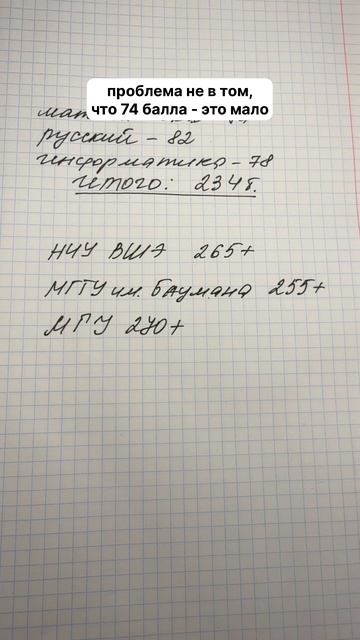 проблема не в том,
что 74 балла - это мало
русский - 82
информатика - 78
Итого: 234 б.
НИУ ВШЭ 265+
МГТУ им. Баумана 255+
МГУ 270+